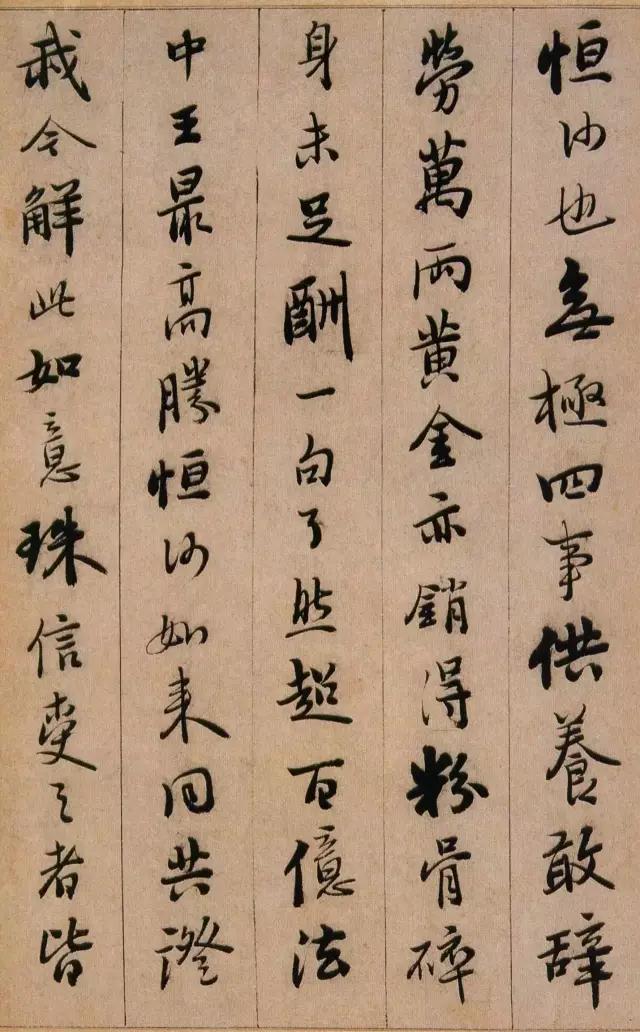 恒沙也無極四事供養敢辭
勞萬兩黃金亦銷得粉骨碎
身未足酬一句了然超百億法
中王最高勝恒沙如來同共證
我今解此如意珠信受之者皆